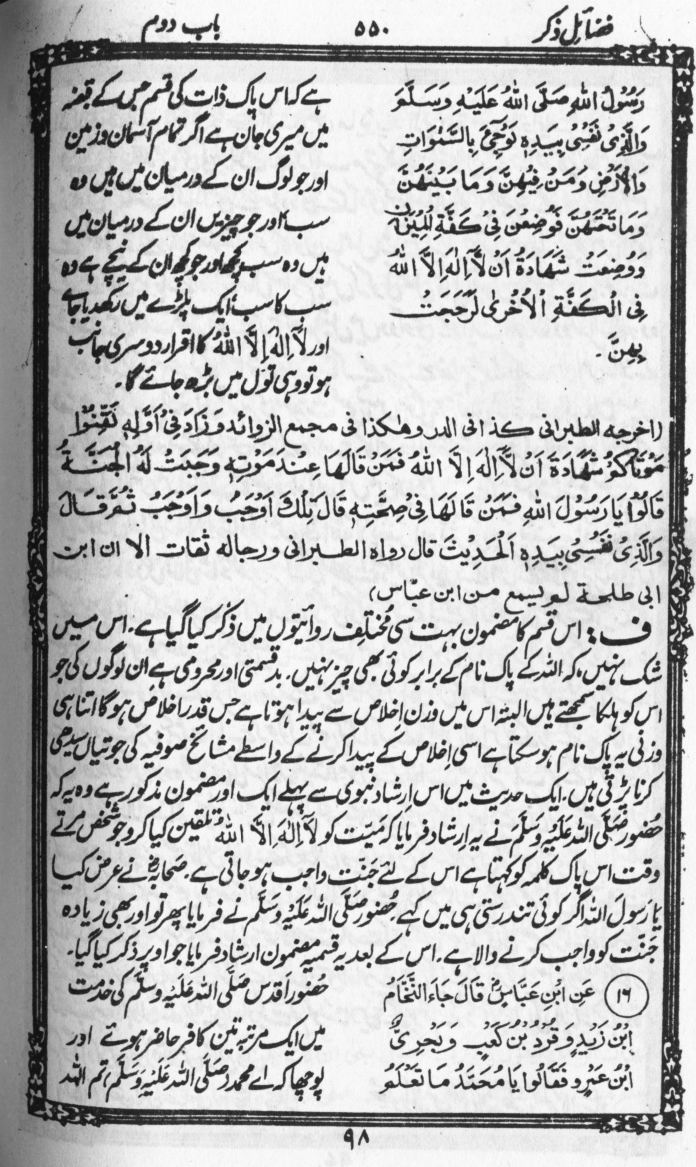 فضائل ذکر
۵۵۰
باب دوم
رَسُوْلُ اللهِ صَلَّى اللهُ عَلَيْهِ وَسَلَّمَ
وَالَّذِيْ نَفْسِيْ بِيَدِهٖ لَوْ جِيْءَ بِالسَّمٰوَاتِ
وَالْاَرْضِ وَمَنْ فِيْهِنَّ وَمَا بَيْنَهُنَّ
وَمَا تَحْتَهُنَّ فَوُضِعْنَ فِيْ كَفَّةِ الْمِيْزَانِ
وَوُضِعَتْ شَهَادَةُ اَنْ لَّا اِلٰهَ اِلَّا اللهُ
فِي الْكَفَّةِ الْاُخْرٰى لَرَجَحَتْ
بِهِنَّ۔
ہے کہ اس پاک ذات کی قسم جس کے قبضہ
میں میری جان ہے اگر تمام آسمان و زمین
اور جو لوگ ان کے درمیان میں ہیں وہ
سب اور جو چیزیں ان کے درمیان میں
ہیں وہ سب کچھ اور جو کچھ ان کے نیچے ہے وہ
سب کا سب ایک پلڑے میں رکھدیا جائے
اور لَا اِلٰهَ اِلَّا اللهُ کا اقرار دوسری جانب
ہو تو وہی تول میں بڑھ جائے گا۔
(اخرجه الطبرانى كذا فى الدر وهكذا فى مجمع الزوائد وَزَادَ فِيْ اَوَّلِهٖ لَقِّنُوْا
مَوْتَاكُمْ شَهَادَةَ اَنْ لَّا اِلٰهَ اِلَّا اللهُ فَمَنْ قَالَهَا عِنْدَ مَوْتِهٖ وَجَبَتْ لَهُ الْجَنَّةُ
قَالُوْا يَا رَسُوْلَ اللهِ فَمَنْ قَالَهَا فِيْ صِحَّتِهٖ قَالَ تِلْكَ اَوْجَبُ وَاَوْجَبُ ثُمَّ قَالَ
وَالَّذِيْ نَفْسِيْ بِيَدِهٖ اَلْحَدِيْثَ قال رواه الطبرانى ورجاله ثقات الا ان ابن
ابى طلحة لم يسمع من ابن عبّاس)
ف: اس قسم کا مضمون بہت سی مختلف روایتوں میں ذکر کیا گیا ہے۔ اس میں
شک نہیں، کہ اللہ کے پاک نام کے برابر کوئی بھی چیز نہیں۔ بدقسمتی اور محرومی ہے ان لوگوں کی جو
اس کو ہلکا سمجھتے ہیں البتہ اس میں وزن اخلاص سے پیدا ہوتا ہے جس قدر اخلاص ہوگا اتنا ہی
وزنی یہ پاک نام ہو سکتا ہے اسی اخلاص کے پیدا کرنے کے واسطے مشائخ صوفیہ کی جوتیاں سیدھی
کرنا پڑتی ہیں۔ ایک حدیث میں اس ارشاد نبوی سے پہلے ایک اور مضمون مذکور ہے وہ یہ کہ
حضور صَلَّى اللهُ عَلَيْهِ وَسَلَّمَ نے یہ ارشاد فرمایا کہ میّت کو لَا اِلٰهَ اِلَّا اللهُ تلقین کیا کرو جو شخص مرتے
وقت اس پاک کلمہ کو کہتا ہے اس کے لئے جنّت واجب ہو جاتی ہے۔ صحابہؓ نے عرض کیا
یا رسول اللہ اگر کوئی تندرستی ہی میں کہے۔ حضور صَلَّى اللهُ عَلَيْهِ وَسَلَّمَ نے فرمایا پھر تو اور بھی زیادہ
جنّت کو واجب کرنے والا ہے۔ اس کے بعد یہ قسمیہ مضمون ارشاد فرمایا جو اوپر ذکر کیا گیا۔
(۱۶) عَنِ ابْنِ عَبَّاسٍؓ قَالَ جَاءَ النَّحَّامُ
ابْنُ زَيْدٍ وَقَرْدُ بْنُ كَعْبٍ وَبَحْرِيُّ
ابْنُ عَمْرٍو فَقَالُوْا يَا مُحَمَّدُ مَا تَعْلَمُ
حضور اقدس صَلَّى اللهُ عَلَيْهِ وَسَلَّمَ کی خدمت
میں ایک مرتبہ تین کافر حاضر ہوئے اور
پوچھا کہ اے محمد (صَلَّى اللهُ عَلَيْهِ وَسَلَّمَ) تم اللہ
۹۸